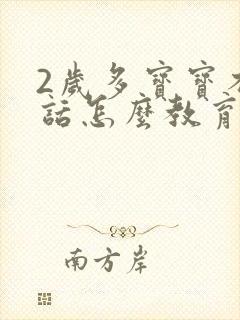 2歲多寶寶不
話怎麼教育
南方岸